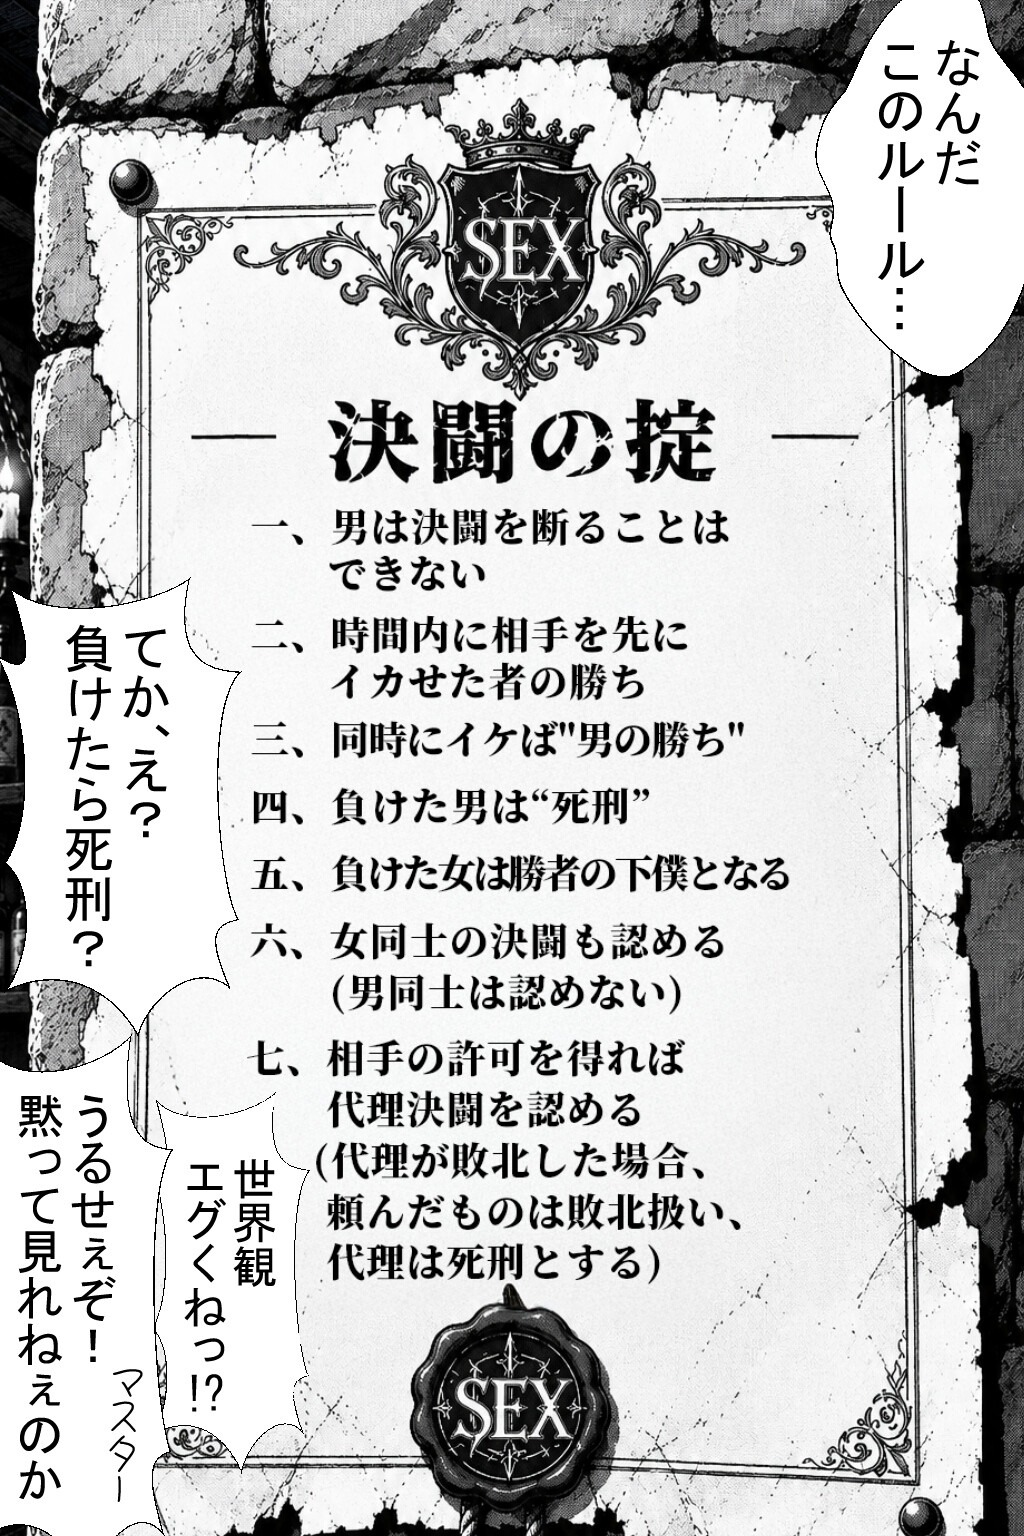 なんだ
このルール…
SEX
決闘の掟
一、男は決闘を断ることは
できない
二、時間内に相手を先に
イカせた者の勝ち
三、同時にイケば"男の勝ち"
四、負けた男は“死刑”
五、負けた女は勝者の下僕となる
六、女同士の決闘も認める
(男同士は認めない)
七、相手の許可を得れば
代理決闘を認める
(代理が敗北した場合、
頼んだものは敗北扱い、
代理は死刑とする)
SEX
てか、え？
負けたら死刑？
世界観
エグくねっ!?
うるせぇぞ！
黙って見れねぇのか
マスター